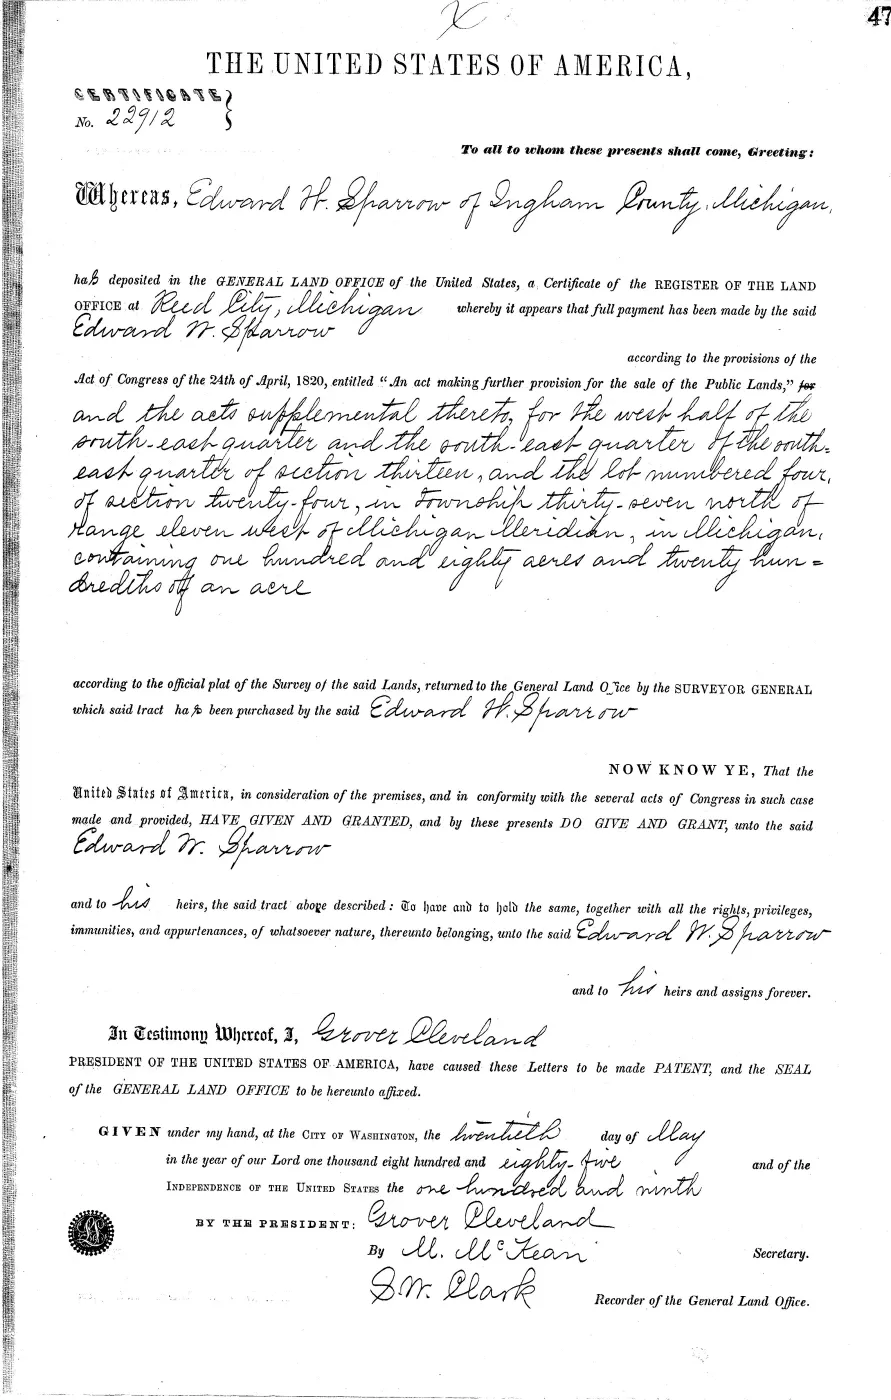 X
47
THE UNITED STATES OF AMERICA,
CERTIFICATE
No. 22912
To all to whom these presents shall come, Greeting:
Whereas, Edward W. Sparrow of Ingham County, Michigan,
has deposited in the GENERAL LAND OFFICE of the United States, a Certificate of the REGISTER OF THE LAND
OFFICE at Reed City, Michigan whereby it appears that full payment has been made by the said
Edward W. Sparrow
according to the provisions of the
Act of Congress of the 24th of April, 1820, entitled “An act making further provision for the sale of the Public Lands,” for
and the acts supplemental thereto, for the west half of the
south-east quarter and the south-east quarter of the south=
east quarter of section thirteen, and the lot numbered four,
of section twenty-four, in Township thirty-seven north of
range eleven west of Michigan Meridian, in Michigan,
containing one hundred and eighty acres and twenty hun=
dredths of an acre
according to the official plat of the Survey of the said Lands, returned to the General Land Office by the SURVEYOR GENERAL
which said tract has been purchased by the said Edward W. Sparrow
NOW KNOW YE, That the
United States of America, in consideration of the premises, and in conformity with the several acts of Congress in such case
made and provided, HAVE GIVEN AND GRANTED, and by these presents DO GIVE AND GRANT, unto the said
Edward W. Sparrow
and to his heirs, the said tract above described: To have and to hold the same, together with all the rights, privileges,
immunities, and appurtenances, of whatsoever nature, thereunto belonging, unto the said Edward W. Sparrow
and to his heirs and assigns forever.
In Testimony Whereof, I, Grover Cleveland
PRESIDENT OF THE UNITED STATES OF AMERICA, have caused these Letters to be made PATENT, and the SEAL
of the GENERAL LAND OFFICE to be hereunto affixed.
GIVEN under my hand, at the CITY OF WASHINGTON, the twentieth day of May
in the year of our Lord one thousand eight hundred and eighty-five and of the
INDEPENDENCE OF THE UNITED STATES the one hundred and ninth
BY THE PRESIDENT: Grover Cleveland
By M. McKean Secretary.
S. W. Clark
Recorder of the General Land Office.